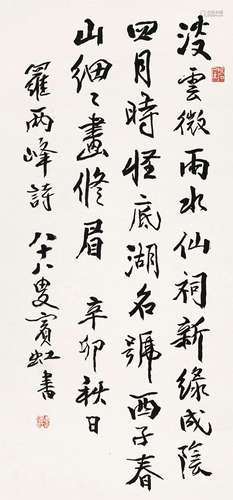 淡雲微雨水仙祠新綠成陰
四月時怪底湖名號西子春
山細〻畫修眉 辛卯秋日
羅兩峰詩 八十八叟賓虹書